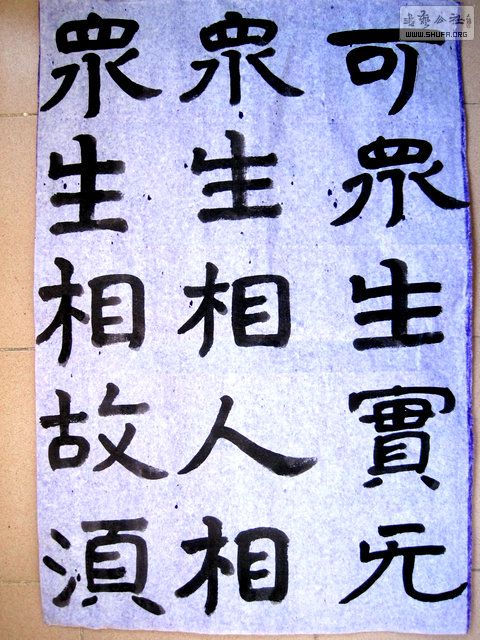 可眾生實无
眾生相人相
眾生相故須
書藝公社
WWW.SHUFA.ORG